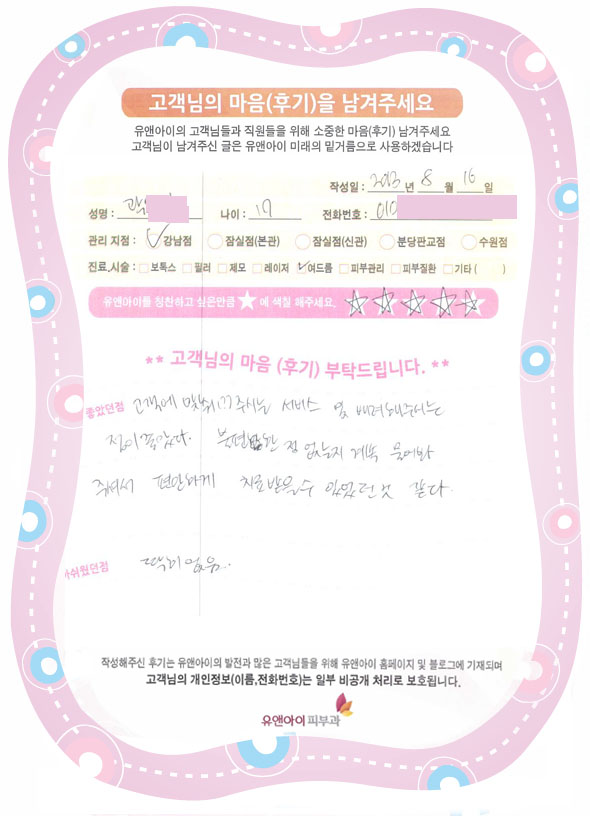 고객님의 마음(후기)을 남겨주세요
유앤아이의 고객님들과 직원들을 위해 소중한 마음(후기) 남겨주세요
고객님이 남겨주신 글은 유앤아이 미래의 밑거름으로 사용하겠습니다
작성일 : 2013 년 8 월 16 일
성명 : 곽 나이 : 17 전화번호 : 010
관리 지점 : 강남점 잠실점(본관) 잠실점(신관) 분당판교점 수원점
진료,시술 : 보톡스 필러 제모 레이저 여드름 피부관리 피부질환 기타 ( )
유앤아이를 칭찬하고 싶은만큼 ★ 에 색칠 해주세요.
** 고객님의 마음 (후기) 부탁드립니다. **
좋았던점 고객에 맞춰(?)주시는 서비스 및 배려해주시는
점이 좋았다. 불편한 점 없는지 계속 물어봐
주셔서 편안하게 치료받을수 있었던것 같다.
아쉬웠던점 딱히 없음.
작성해주신 후기는 유앤아이의 발전과 많은 고객님들을 위해 유앤아이 홈페이지 및 블로그에 기재되며
고객님의 개인정보(이름,전화번호)는 일부 비공개 처리로 보호됩니다.
유앤아이피부과